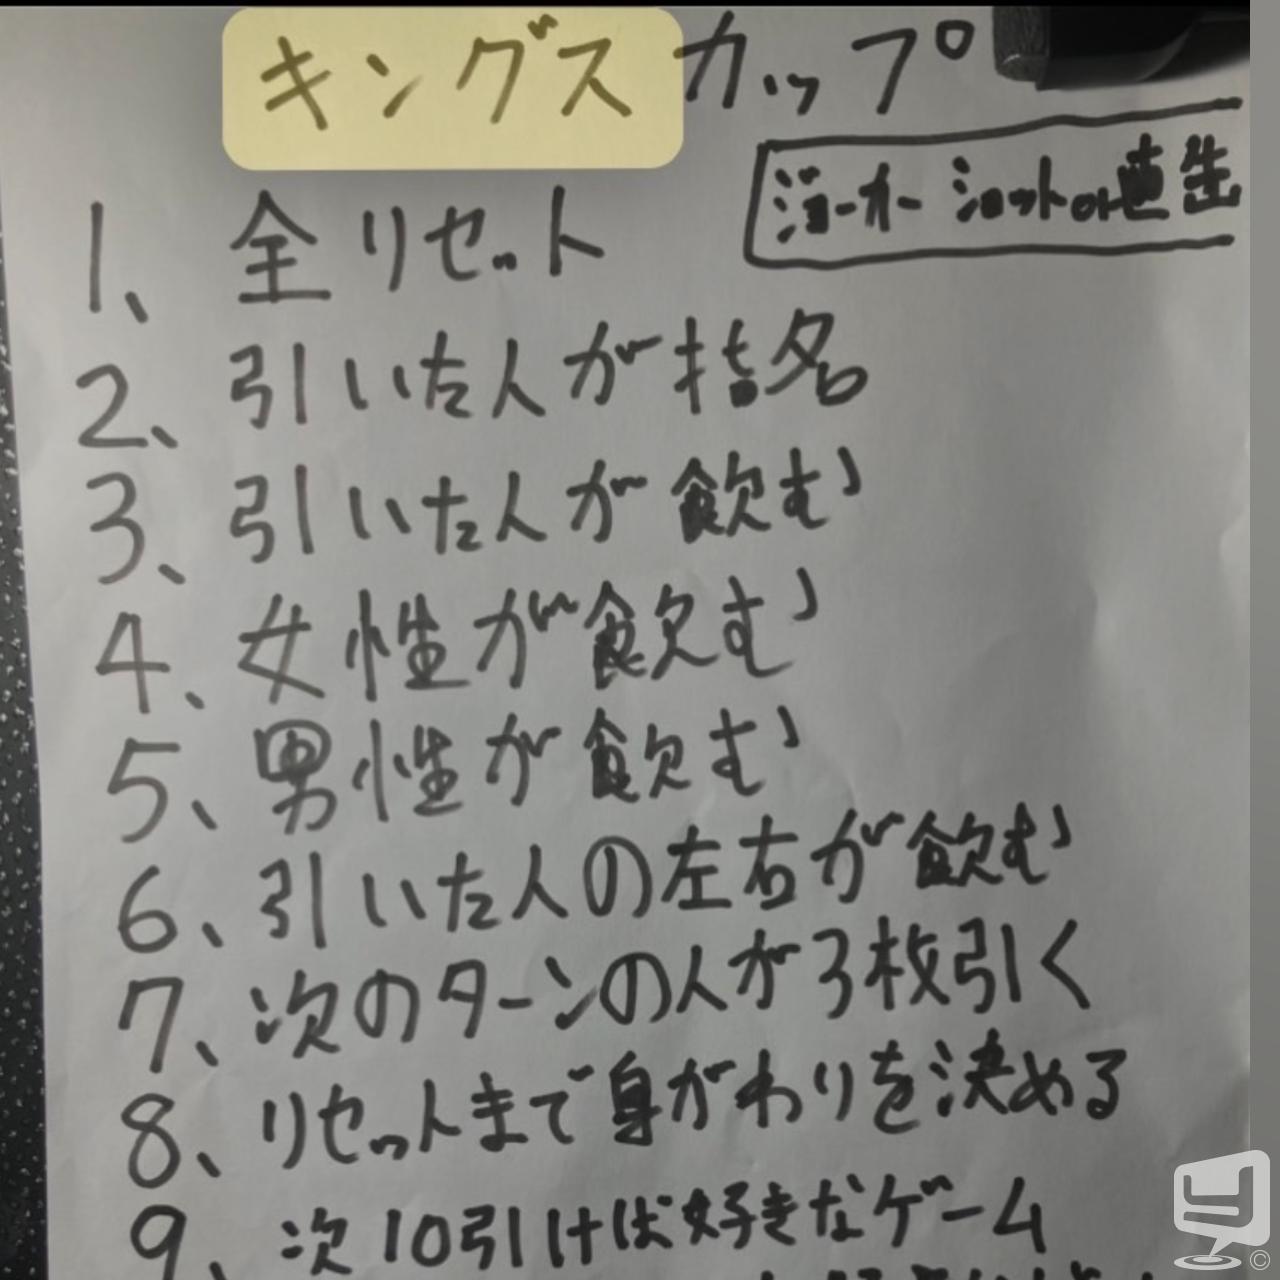 キングスカップ
ジョーカー ショットor直生
1、全リセット
2、引いた人が指名
3、引いた人が飲む
4、女性が飲む
5、男性が飲む
6、引いた人の左右が飲む
7、次のターンの人が3枚引く
8、リセットまで身がわりを決める
9、次10引けば好きなゲーム